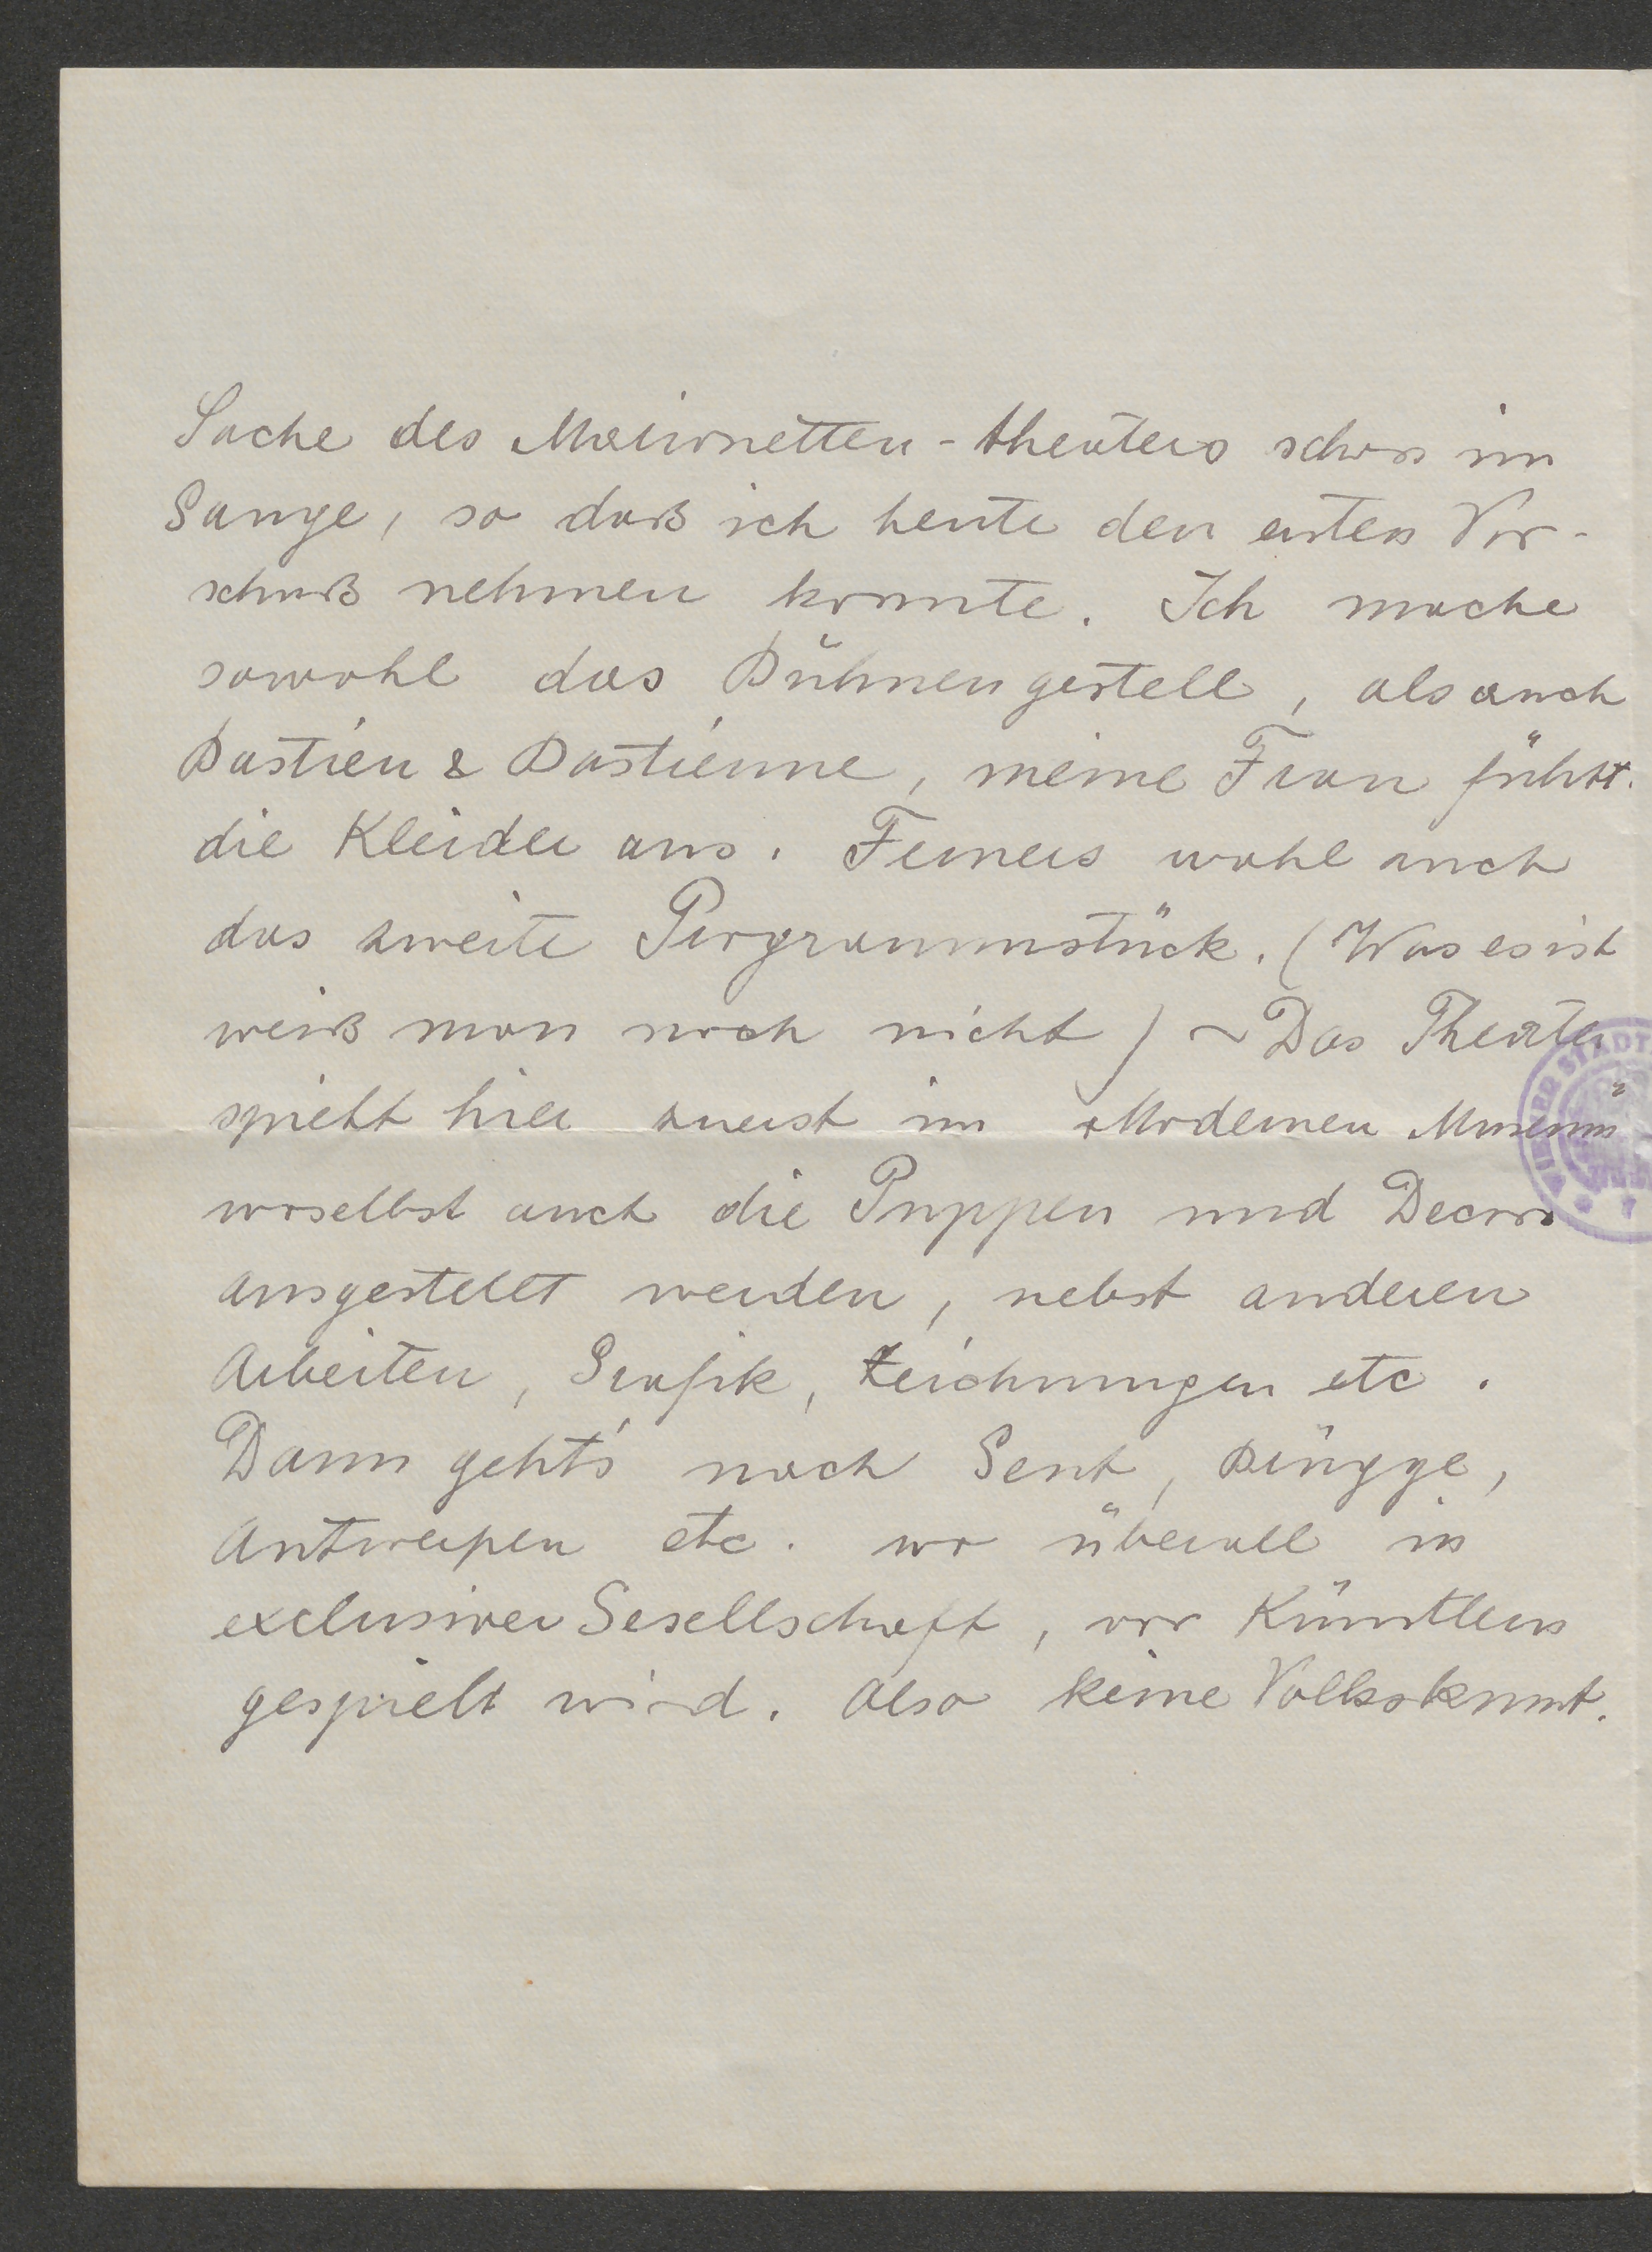 Sache des Marionetten-theaters schon im
Gange, so daß ich heute den ersten Vor-
schuß nehmen konnte. Ich mache
sowohl das Bühnengestell, als auch
Bastien & Bastienne, meine Frau führt
die Kleider aus. Ferners wohl auch
das zweite Programmstück. (Was es ist
weiß man noch nicht) ~ Das Theater
spielt hier zuerst im Modernen Museum
woselbst auch die Puppen und Decors
ausgestellt werden, nebst anderen
Arbeiten, Grafik, Zeichnungen etc.
Dann geht's nach Gent, Brügge,
Antwerpen etc. wo überall in
exclusiver Gesellschaft, vor Künstlern
gespielt wird. Also keine Volkskunst.